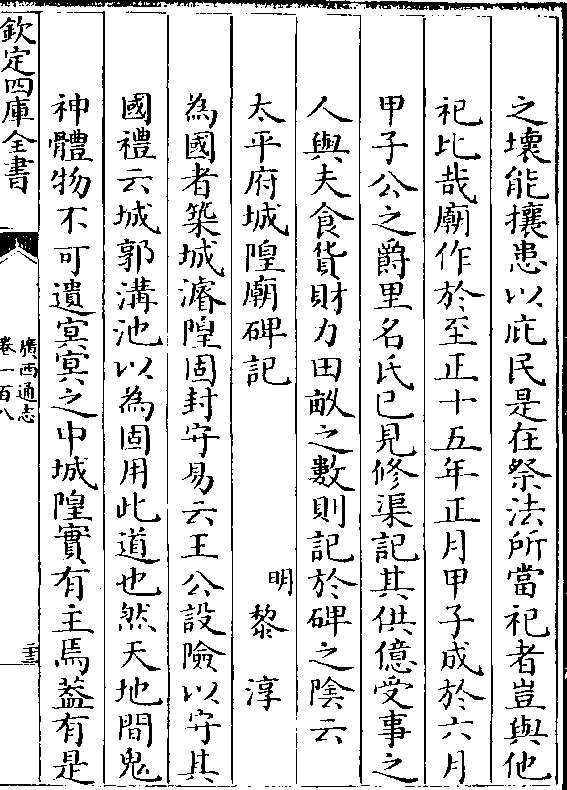 之壊能攘患以庇民是在祭法所當祀者豈與他
祀比哉廟作於至正十五年正月甲子成於六月
甲子公之爵里名氏已見修渠記其供億受事之
人與夫食貨財力田畝之數則記於碑之隂云
太平府城隍廟碑記
明黎淳
為國者築城濬隍固封守易云王公設險以守其
國禮云城郭溝池以為固用此道也然天地間鬼
神體物不可遺冥冥之中城隍實有主焉葢有是
欽定四庫全書
廣西通志
卷一百八